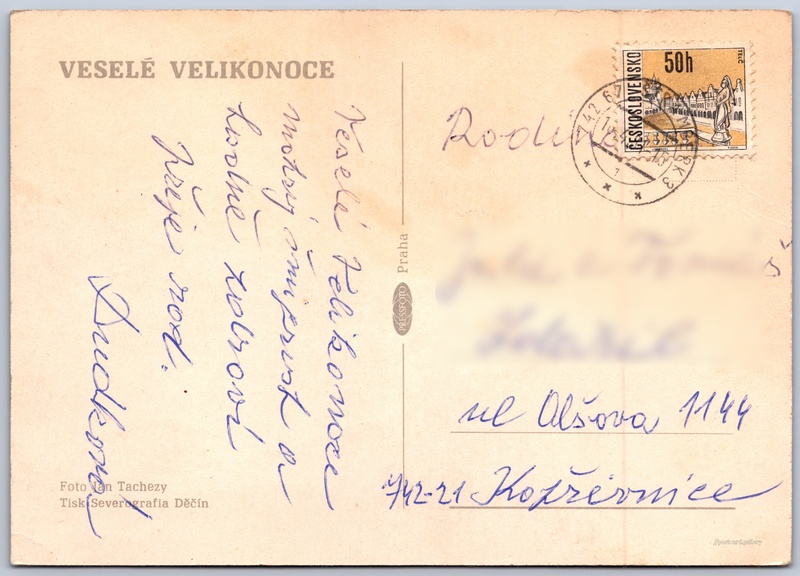 VESELÉ VELIKONOCE
Veselé Velikonoce
mokrý šmigrust a
hodně zdraví
přeje rod.
Dudkova!
Foto Jan Tachezy
Tisk Severografia Děčín
PRESSFOTO Praha
ČESKOSLOVENSKO
50h
TELČ
742 67
3
Rodina
ul Olšova 1144
742-21 Kopřivnice